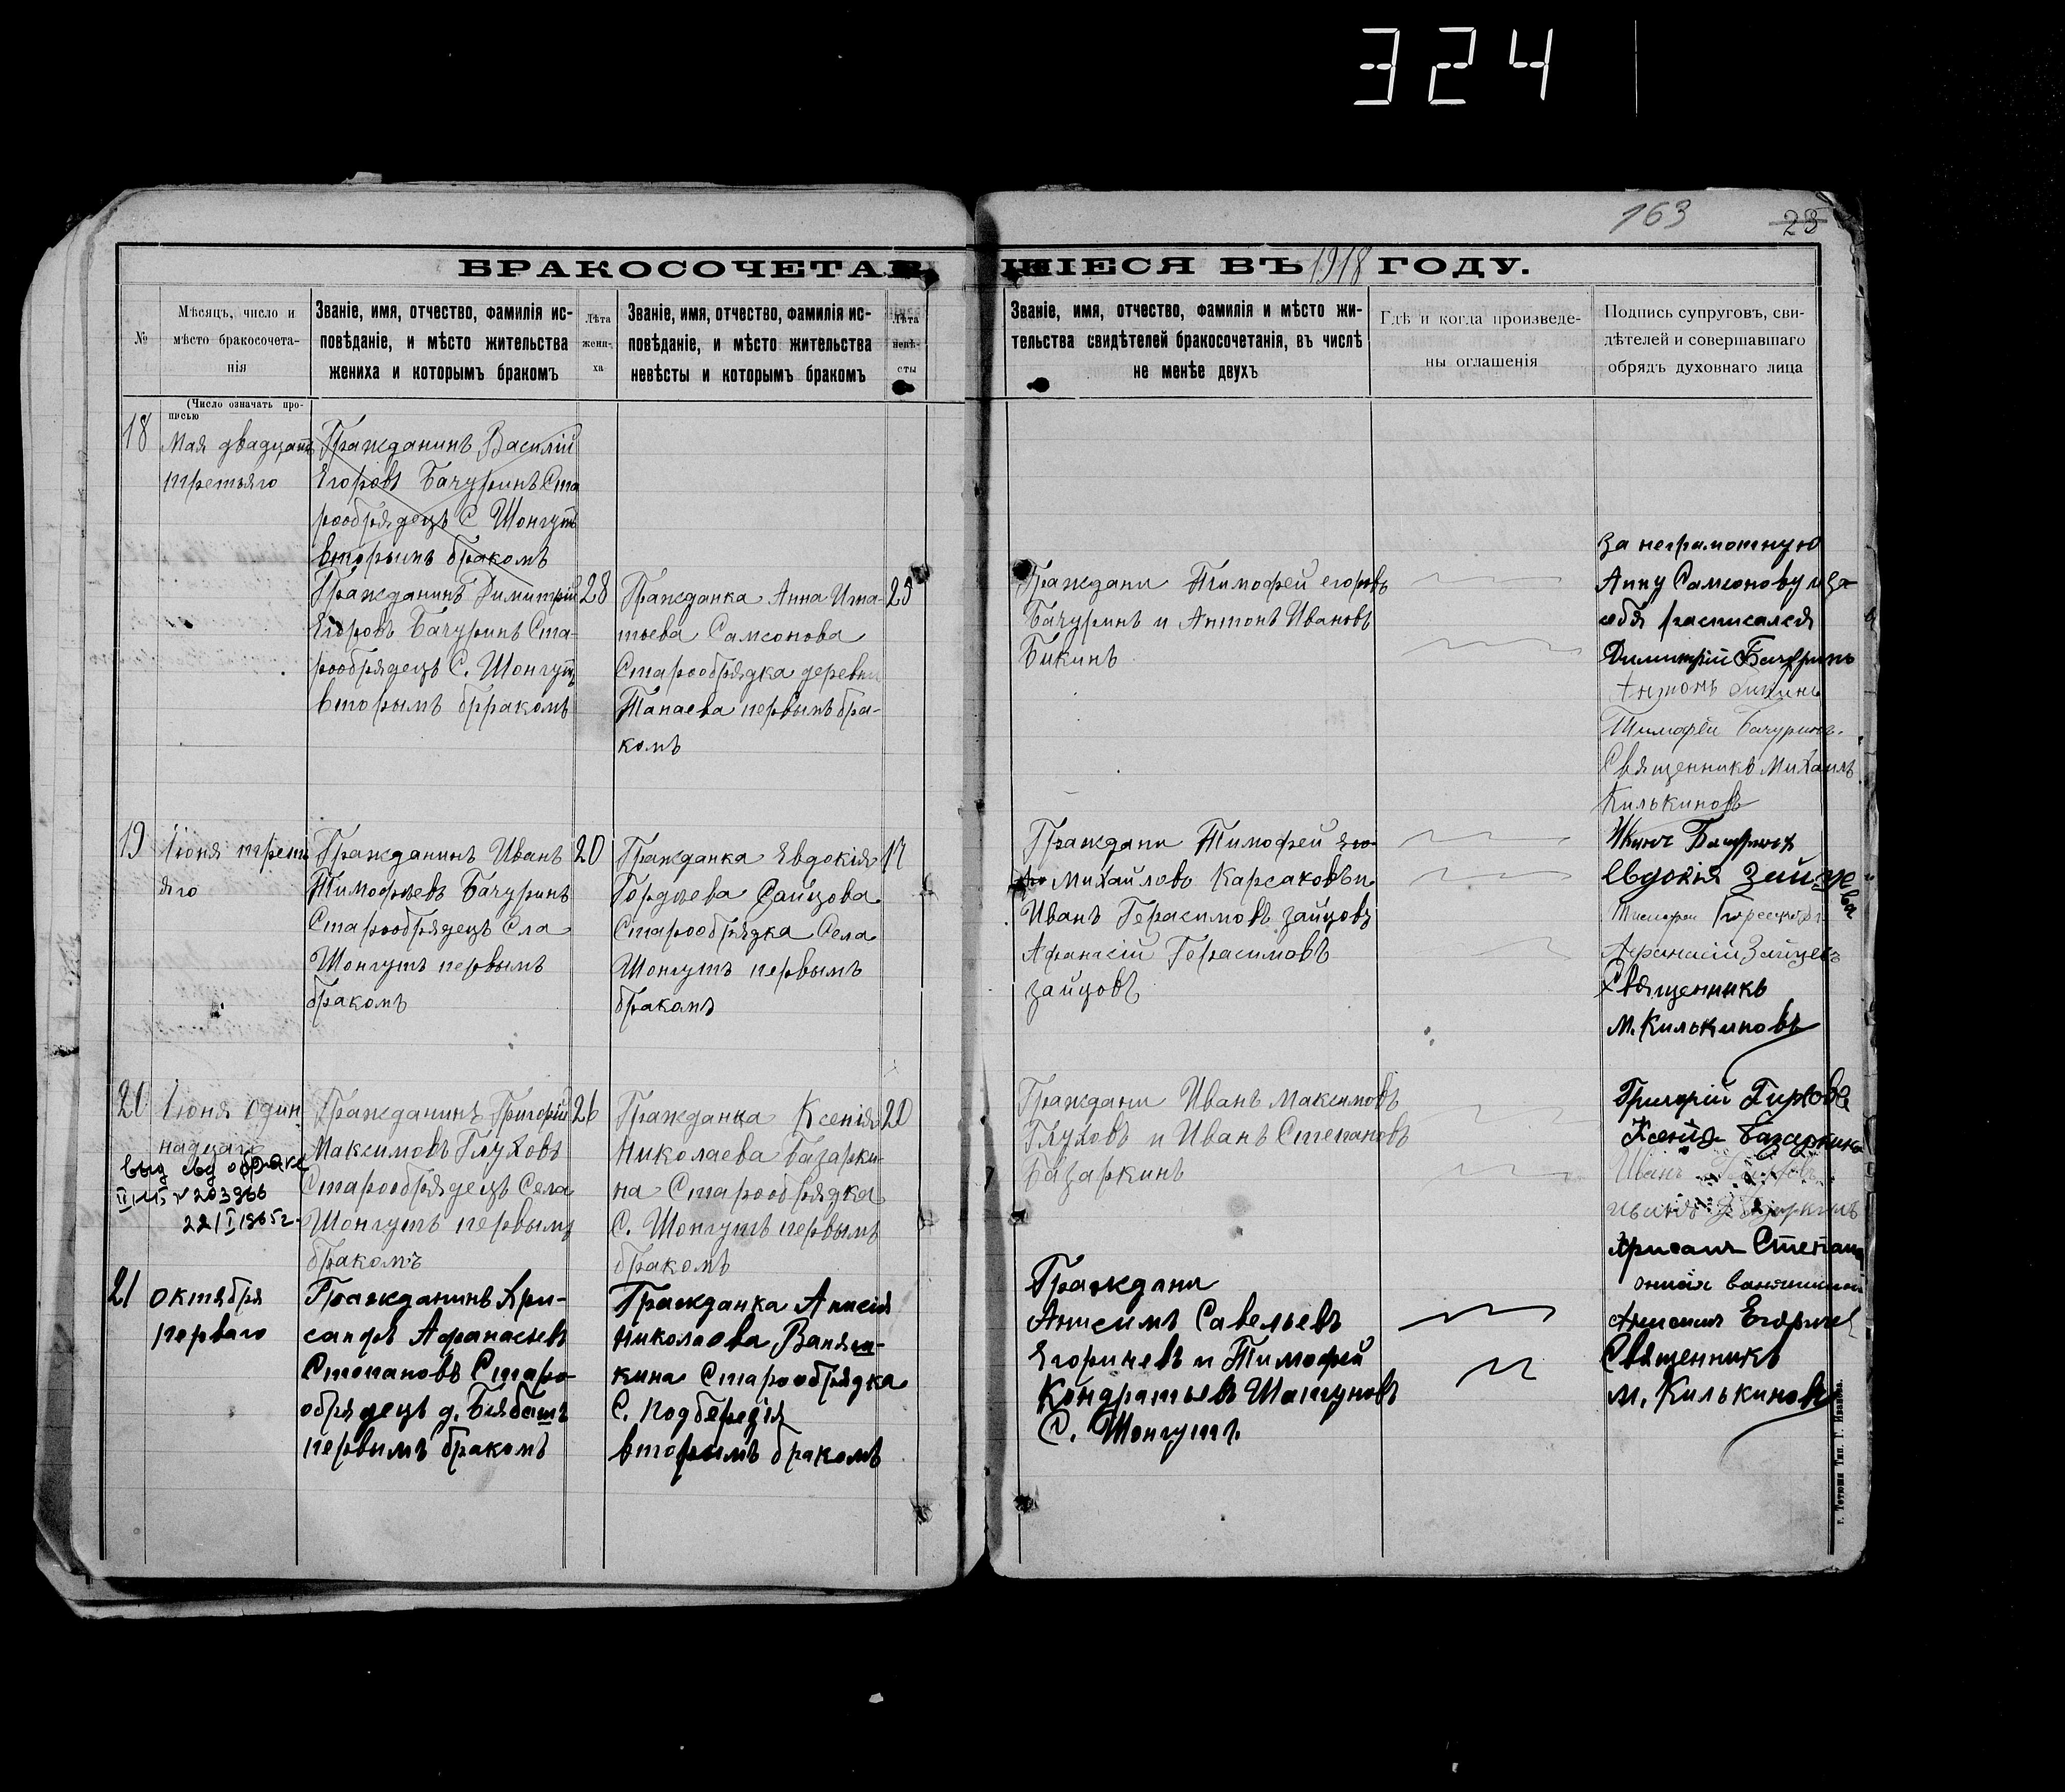 324
163
23
БРАКОСОЧЕТАВШІЕСЯ ВЪ 1918 ГОДУ.
№
Мѣсяцъ, число и
мѣсто бракосочета-
нія
(Число означать про-
писью
Званіе, имя, отчество, фамилія ис-
повѣданіе, и мѣсто жительства
жениха и которымъ бракомъ
Лѣта
жени-
ха
Званіе, имя, отчество, фамилія ис-
повѣданіе, и мѣсто жительства
невѣсты и которымъ бракомъ
Лѣта
невѣ-
сты
Званіе, имя, отчество, фамилія и мѣсто жи-
тельства свидѣтелей бракосочетанія, въ числѣ
не менѣе двухъ
Гдѣ и когда произведе-
ны оглашенія
Подпись супруговъ, сви-
дѣтелей и совершавшаго
обрядъ духовнаго лица
18
Мая двадцать
третьяго
Гражданинъ Василій
Егоровъ Бачуринъ Ста
рообрядецъ С Шонгутъ
вторымъ бракомъ
Гражданинъ Димитрій
Егоровъ Бачуринъ Ста-
рообрядецъ С. Шонгутъ
вторымъ брракомъ
28
Гражданка Анна Игна-
тьева Самсонова
Старообрядка деревни
Танаева первымъ бра-
комъ
25
Граждани Тимофей егоровъ
Бачуринъ и Антонъ Ивановъ
Бикинъ
За неграмотную
Анну Самсонову и за
себя расписался
Димитрій Бачуринъ
Антонъ Бикинъ
Тимофей Бачуринъ.
Священникъ Михаилъ
Килькиновъ
19
Іюня треть
яго
Гражданинъ Иванъ
Тимофѣевъ Бачуринъ
Старообрядецъ Сла
Шонгутъ первымъ
бракомъ
20
Гражданка Евдокія
Гордѣева Зайцова
Старообрядка Села
Шонгутъ первымъ
бракомъ
17
Граждани Тимофей
Михайлово Карсаковъ и
Иванъ Герасимовъ зайцовъ
Афанасій Герасимовъ
зайцовъ
Евдокія Зайцева
Афанасій Зайцевъ
Священникъ
М. Килькиновъ
20
Іюня один
надцаго
выд свд о браке
II МБ № 203966
22/I 1965г.
Гражданинъ Григорій
Максимовъ Глуховъ
Старообрядецъ Села
Шонгутъ первымъ
бракомъ
26
Гражданка Ксенія
Николаева Базарки-
на Старообрядка
С. Шонгутъ первымъ
бракомъ
20
Граждани Иванъ Максимовъ
Глуховъ и Иванъ Степановъ
Базаркинъ
Григорій
Ксенія Базаркина
Иванъ
21
Октября
перваго
Гражданинъ Хри-
санфъ Афанасьевъ
Степановъ Старо-
обрядецъ д. Бябашъ
первымъ бракомъ
Гражданка Анисія
Николаева Ваняш-
кина Старообрядка
С. Подберезія
вторымъ бракомъ
Граждани
Анисимъ Савельевъ
Егоричевъ и Тимофей
Кондратьевъ Шатуновъ
С. Шонгутъ.
Священникъ
М. Килькиновъ
г. Тетюши Тип. Г. Иванова.